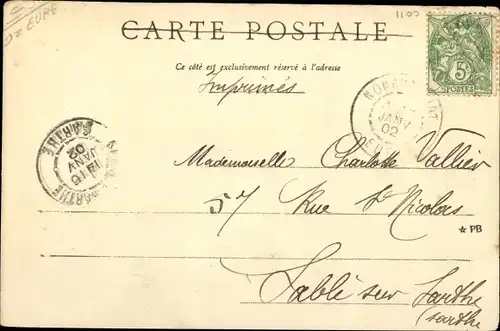 CARTE POSTALE
Ce côté est exclusivement réservé à l'adresse
Imprimés
5 POSTES
JANV
02
SARTHE
16
JANV
02
Mademoiselle Charlotte Vallier
57 Rue St Nicolas
★ PB
Sablé sur Sarthe
(Sarthe